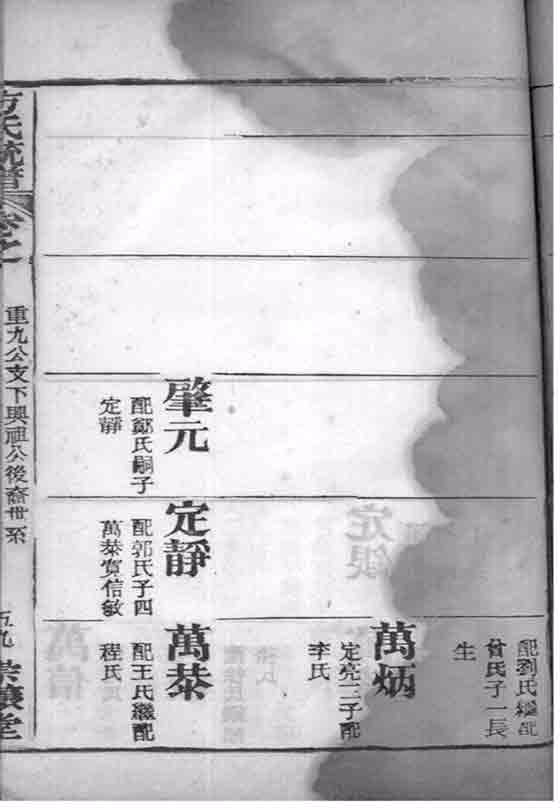 配劉氏繼配
曾氏子一長
生
萬炳
定亮三子配
李氏
肇元
配鄭氏嗣子
定靜
定靜
配郭氏子四
萬恭寬信敏
萬恭
配王氏繼配
程氏
方氏統譜
卷之
重九公支下興祖公後裔世系
五九
堂